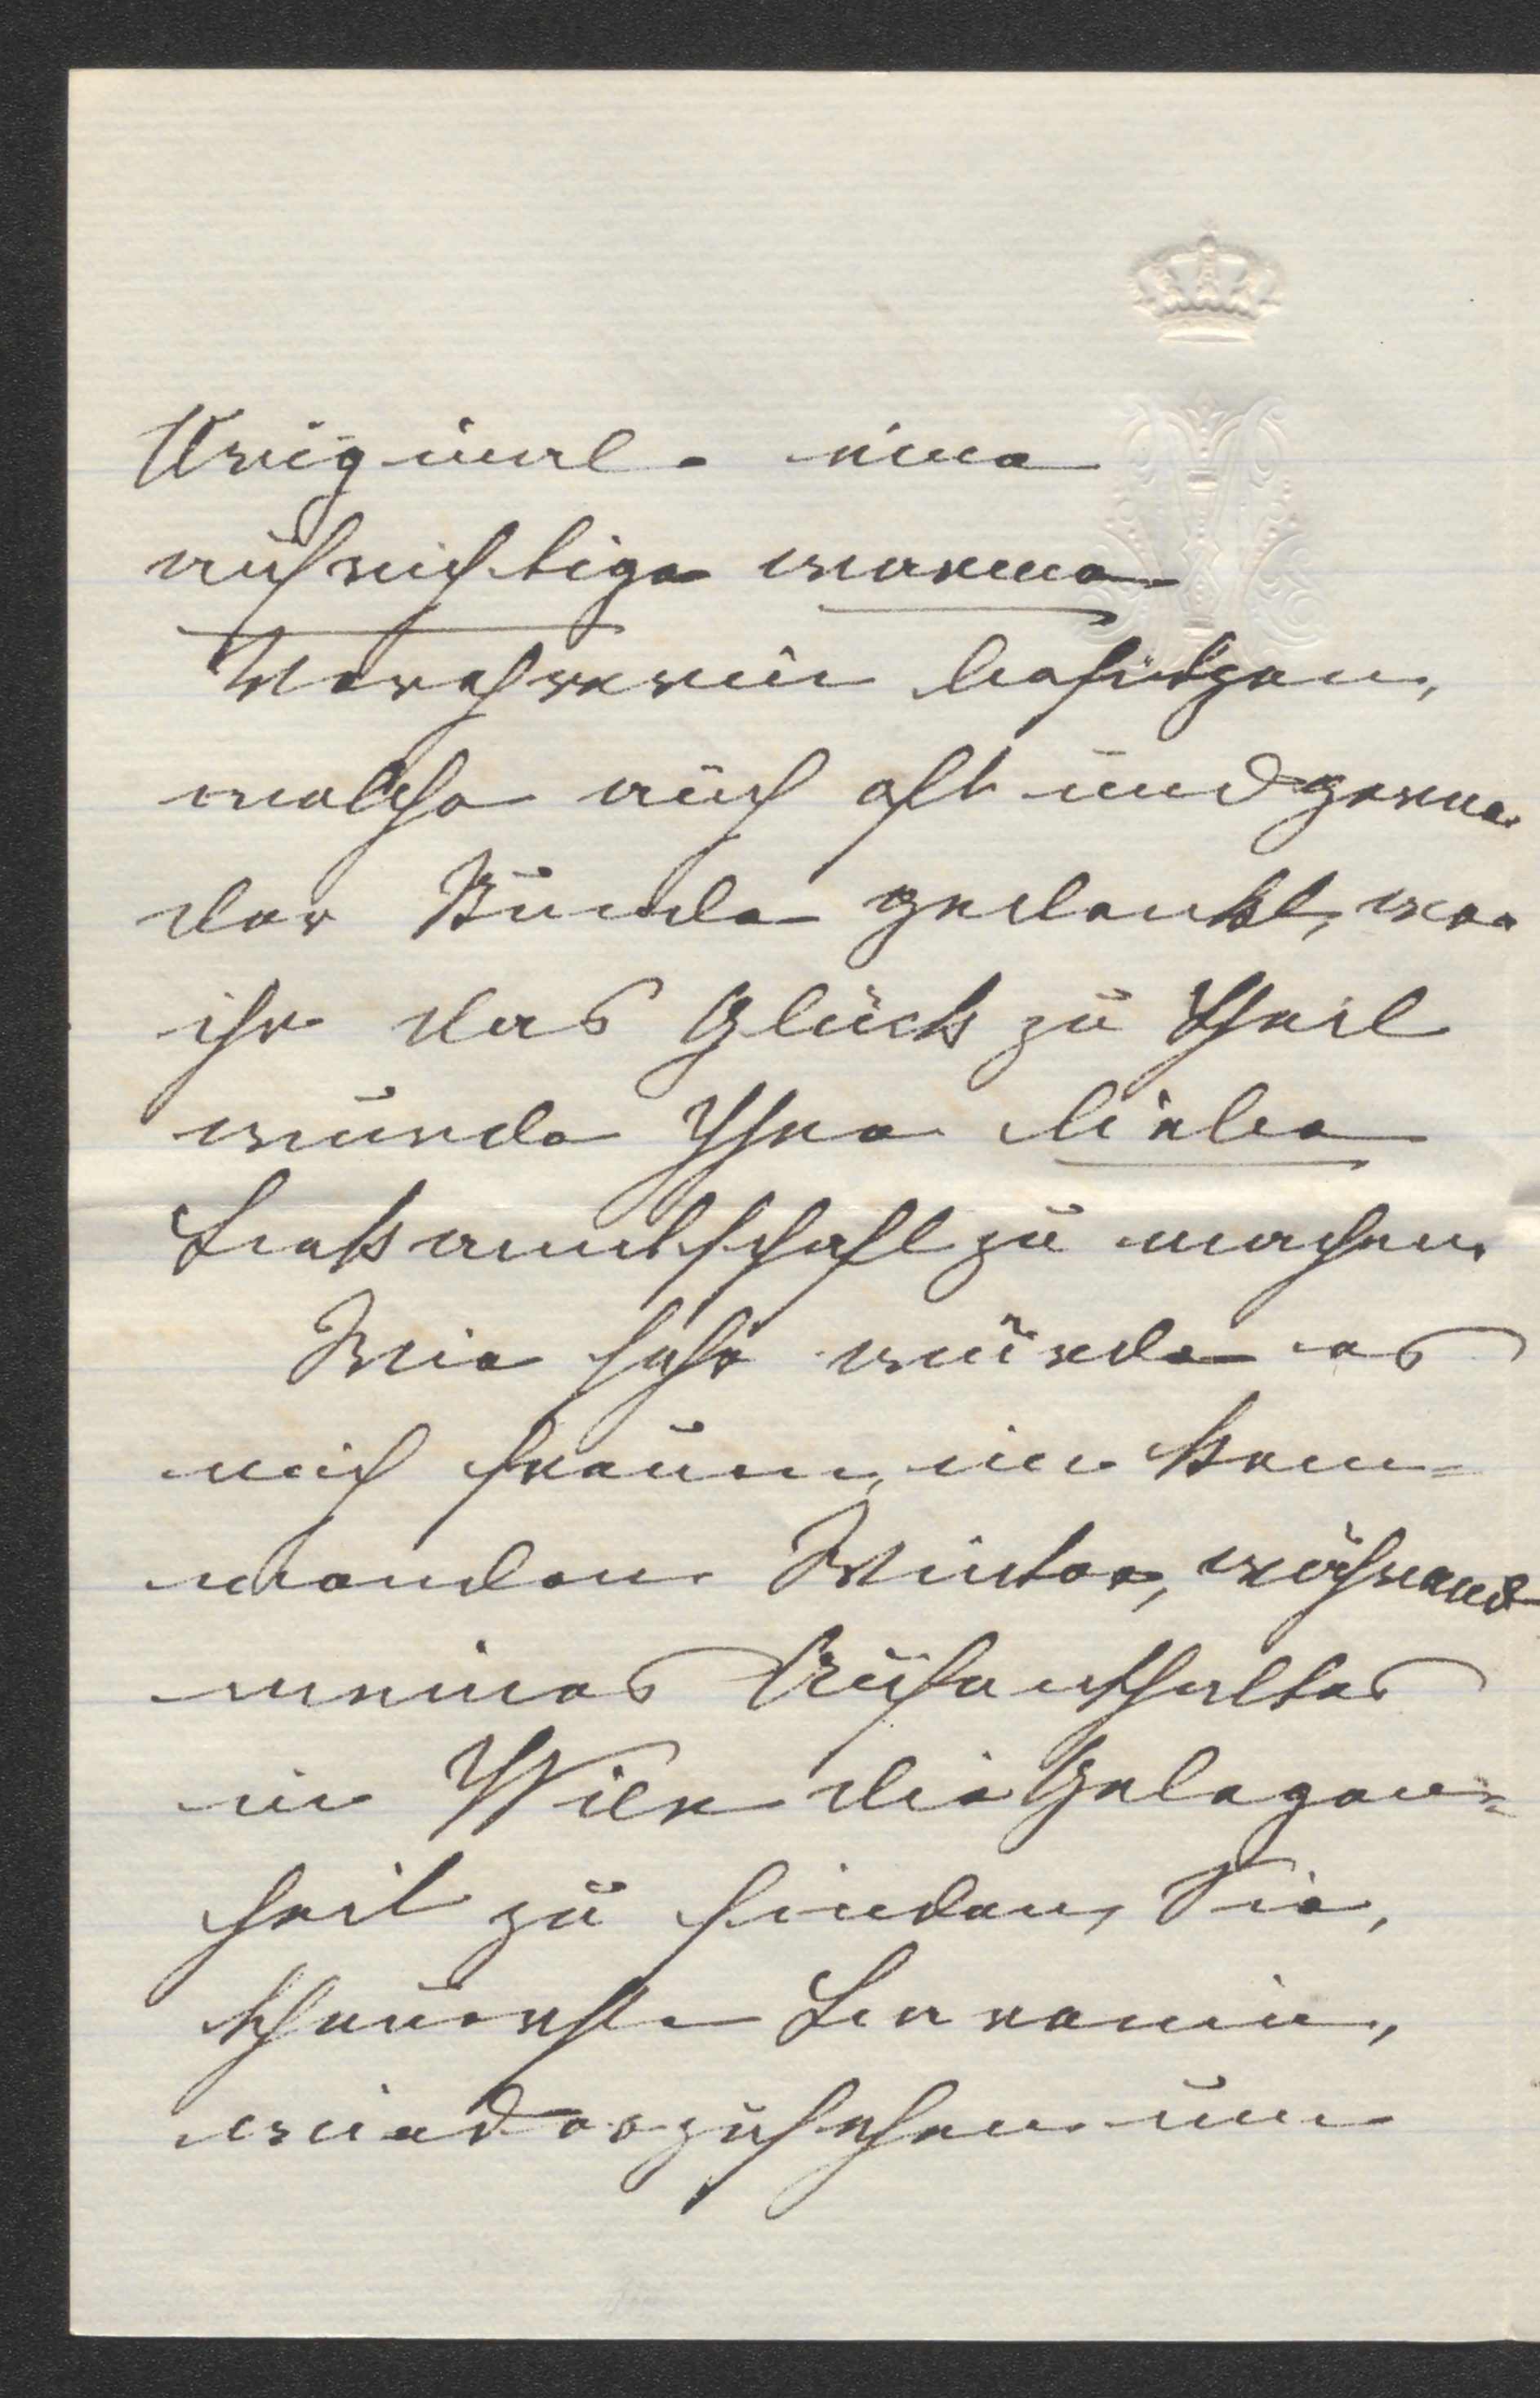 Original eine
aufrichtige warme
Verehrerin besitzen,
welche auch oft und gerne
der Stunde gedenkt, wo
ihr das Glück zu Theil
wurde Ihre liebe
Bekanntschaft zu machen.
Wie sehr würde es
mich freuen, im kom-
menden Winter, während
meines Aufenthaltes
in Wien die Gelegen-
heit zu finden, Sie,
theuerste Baronin,
wiederzusehen um